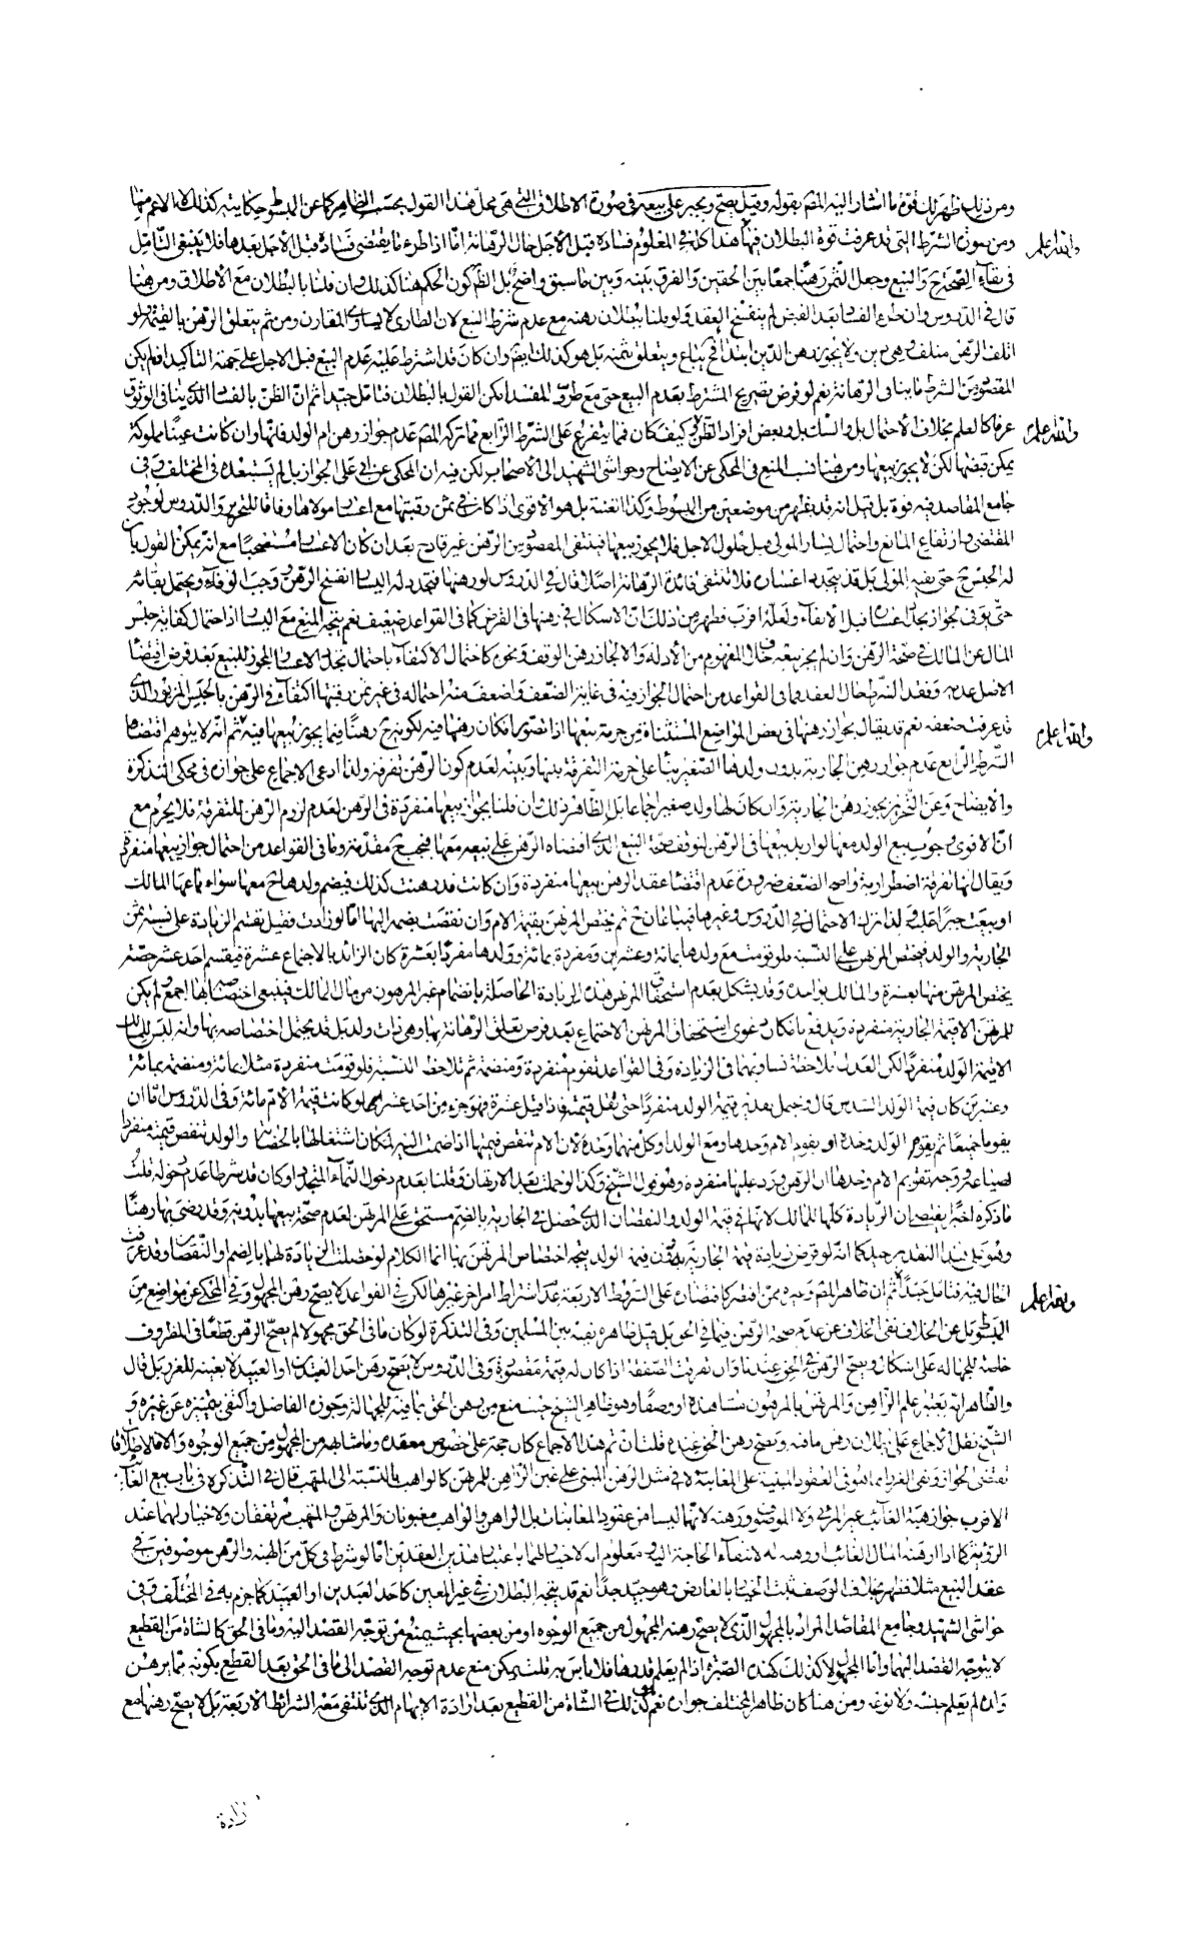 ومن ذلك ظهر لك قوة ما اشار اليه المصـ بقوله وقيل يصح ويجبر على بيعه في صورة الاطلاق التي هي محل هذا القول بحسب الظاهر كما عن المبسوط حكايته كذلك لا الاعم منها
ومن صورة الشرط التي قد عرفت قوة البطلان فيها هذا كله في المعلوم فساده قبل الاجل حال الرهانة اما اذا طرء ما يقتضى فساده قبل الاجل بعدها فلا ينبغي التامل
والله اعلم
في بقاء الصحة والبيع وجعل الثمن رهنا جمعا بين الحقين والفرق بينه وبين ما سبق واضح بل الظـ كون الحكم هنا كذلك وان قلنا بالبطلان مع الاطلاق ومن هنا
قال في الدروس وان طرء الفساد بعد القبض لم ينفسخ العقد ولو قلنا ببطلان رهنه مع عدم شرط البيع لان الطارى لا يساوى المقارن ومن ثم يتعلق الرهن بالقيمة لو
اتلف الرهن متلف وهي دين ولا يجوز رهن الدين ابتداء فح يباع ويتعلق بثمنه بل هو كذلك ايضا وان كان قد اشترط عليه عدم البيع قبل الاجل على جهة التاكيد اذ لم يكن
المقصود من الشرط ما ينافى الرهانة نعم لو فرض تصريح المشترط بعدم البيع حتى مع طرو المفسد امكن القول بالبطلان فتامل جيدا ثم ان الظن بالفساد الذي ينافى الوثوق
عرفا كالعلم بخلاف الاحتمال بل والشك بل وبعض افراد الظن وكيف كان فمما يتفرع على الشرط الرابع مما تركه المصـ عدم جواز رهن ام الولد فانها وان كانت عينا مملوكة
والله اعلم
يمكن قبضها لكن لا يجوز بيعها ومن هنا نسب المنع في المحكى عن الايضاح وحواشى الشهيد الى الاصحاب لكن فيه ان المحكى عن ابى على الجواز بل لم يستبعده في المختلف وفي
جامع المقاصد فيه قوة بل قيل انه قد يظهر من موضعين من المبسوط وكذا الغنية بل هو الاقوى اذا كان في ثمن رقبتها مع اعسار مولاها وفاقا للتحرير والدروس لوجود
المقتضى وارتفاع المانع واحتمال يسار المولى قبل حلول الاجل فلا يجوز بيعها فينتفى المقصود من الرهن غير قادح بعد ان كان الاعسار مستصحبا مع انه يمكن القول بان
له الحبس ح حتى يفيه المولى بل قد يتجدد اعساره فلا تنتفى فائدة الرهانة اصلا قال في الدروس لو رهنها فتجدد له اليسار انفسخ الرهن ووجب الوفاء ويحتمل بقائه
حتى يوفى لجواز تجدد اعساره قبل الايفاء ولعله اقرب فظهر من ذلك ان الاشكال في رهنها في الفرض كما في القواعد ضعيف نعم يتجه المنع مع اليسار اذ احتمال كفاية حبس
المال عن المالك في صحة الرهن وان لم يجز بيعه خلاف المفهوم من الادلة والا لجاز رهن الوقف ونحوه كاحتمال الاكتفاء باحتمال تجدد الاعسار المجوز للبيع بعد فرض اقتضاء
الاصل عدمه وفقد الشرط حال العقد فما في القواعد من احتمال الجواز فيه في غاية الضعف واضعف منه احتماله في غير ثمن رقبتها اكتفاء في الرهن بالحبس المزبور الذي
قد عرفت ضعفه نعم قد يقال بجواز رهنها في بعض المواضع المستثناة من حرمة بيعها اذا تصور امكان رهنها فيه لكونه ح رهنا فيما يجوز بيعها فيه ثم انه لا يتوهم اقتضاء
والله اعلم
الشرط الرابع عدم جواز رهن الجارية بدون ولدها الصغير بناء على حرمة التفرقة بينها وبينه لعدم كون الرهن تفرقة ولذا ادعى الاجماع على جوازه في محكى التذكرة
والايضاح وعن التحرير يجوز رهن الجارية وان كان لها ولد صغير اجماعا بل الظاهر ذلك وان قلنا بجواز بيعها منفردة في الرهن لعدم لزوم الرهن للتفرقة فلا يحرم مع
ان الاقوى وجوب بيع الولد معها لو اريد بيعها في الرهن لتوقف صحة البيع الذي اقتضاه الرهن على بيعه معها فيجب ح مقدمة وما في القواعد من احتمال جواز بيعها منفردة
ويقال انها تفرقة اضطرارية واضح الضعف ضرورة عدم اقتضاء عقد الرهن بيعها منفردة وان كانت قد رهنت كذلك فيضم ولدها ح معها سواء باعها المالك
او بيعت جبرا عليه ولذا ترك الاحتمال في الدروس وغيرها فيباعان ح ثم يختص المرتهن بقيمة الام وان نقصت بضمه اليها اما لو زادت فقيل تقسم الزيادة على نسبة ثمن
الجارية والولد فيختص المرتهن على النسبة فلو قومت مع ولدها بمائة وعشرين ومفردة بمائة وولدها مفردا بعشرة كان الزائد بالاجتماع عشرة فيقسم احد عشر حصة
يختص المرتهن منها بعشرة والمالك بواحدة وقد يشكل بعدم استحقاق المرتهن هذه الزيادة الحاصلة بانضمام غير المرهون من مال المالك فينبغى اختصاصه بها اجمع ولم يكن
للمرتهن الا قيمة الجارية منفردة ويدفع بامكان دعوى استحقاق المرتهن الاجتماع بعد فرض تعلق الرهانة بها وهي ذات ولد بل قد يحتمل اختصاصه بها وانه ليس للمالك
الا قيمة الولد منفردا لكن العدل ملاحظة تساويهما في الزيادة وفي القواعد تقوم منفردة ومنضمة ثم تلاحظ النسبة فلو قومت منفردة مثلا بمائة ومنضمة بمائة
وعشرين كان قيمة الولد السدس قال ويحتمل تقدير قيمة الولد منفردا حتى تقل قيمته فاذا قيل عشرة فهو جزء من احد عشر اى لو كانت قيمة الام مائة وفي الدروس اما ان
يقوما جميعا ثم يقوم الولد وحده او يقوم الام وحدها ومع الولد او كل منهما وحده لان الام تنقص قيمتها اذا ضمت اليه لمكان اشتغالها بالحضانة والولد تنقص قيمته منفردا
لضياعه ووجه تقويم الام وحدها ان الرهن ورد عليها منفردة وهو قول الشيخ وكذا لو حملت بعد الارتهان وقلنا بعدم دخول النماء المتجدد او كان قد شرطا عدم دخوله قلت
ما ذكره اخيرا يقتضى ان الزيادة كلها للمالك لانها في قيمة الولد والنقصان الذي حصل في الجارية بالضم مستحق على المرتهن لعدم صحة بيعها بدونه وقد رضى بها رهنا
وهو على هذا التقدير جيد كما انه لو فرض زيادة قيمة الجارية بدون قيمة الولد يتجه اختصاص المرتهن بها انما الكلام لو حصلت الزيادة لهما بالضم او النقصان وقد عرفت
الحال فيه فتامل جيدا ثم ان ظاهر المصـ وغيره ممن اقتصر كاقتصاره على الشروط الاربعة عدم اشتراط امر اخر غيرها لكن في القواعد لا يصح رهن المجهول وفي المحكى عن مواضع من
والله اعلم
المبسوط بل عن الخلاف نفى الخلاف عن عدم صحة الرهن فيما في الحق بل قيل ظاهره نفيه بين المسلمين وفي التذكرة لو كان ما في الحق مجهولا لم يصح الرهن قطعا في المظروف
خاصة للجهالة على اشكال ويصح الرهن في الحق عندنا وان تفرقت الصفقة اذا كان له قيمة مقصودة وفي الدروس لا يصح رهن احد العبدين او العبيد لا بعينه للغرر بل قال
والظاهر انه يعتبر علم الراهن والمرتهن بالمرهون مشاهدة او وصفا وهو ظاهر الشيخ حيث منع من رهن الحق بما فيه للجهالة وجوزه الفاضل واكتفى بتميزه عن غيره و
الشيخ نقل الاجماع على بطلان رهن ما فيه وتصح رهن الحق عنده قلت ان تم هذا الاجماع كان حجة على خصوص معقده وما شابهه من المجهول من جميع الوجوه والا فالاطلاقات
تقتضى الجواز ونفى الغرر انما هو في العقود المبنية على المغابنة لا في مثل الرهن المبنى على غبن الراهن للمرتهن كالواهب بالنسبة الى المتهب قال في التذكرة في باب بيع الغائب
الاقرب جواز هبة الغائب غير المرئى ولا الموصوف ورهنه لانهما ليسا من عقود المغابنات بل الراهن والواهب مغبونان والمرتهن والمتهب مرتفقان ولا خيار لهما عند
الرؤية كما اذا رهنه المال الغائب او وهبه له لانتفاء الحاجة اليه ومعلوم انه لا خيار لهما باعتبار هذين العقدين اما لو شرط في كل من الهبة والرهن موصوفين في
عقد البيع مثلا فظهر بخلاف الوصف ثبت الخيار بالعارض وهو جيد جدا نعم قد يتجه البطلان في غير المعين كاحد العبدين او العبيد كما جزم به في المختلف وفي
حواشى الشهيد وجامع المقاصد المراد بالمجهول الذي لا يصح رهنه المجهول من جميع الوجوه او من بعضها بحيث يمنع من توجه القصد اليه وما في الحق كالشاة من القطيع
لا يتوجه القصد اليهما واما المجهول لا كذلك كهذه الصبرة اذا لم يعلم قدرها فلا باس به قلت يمكن منع عدم توجه القصد الى ما في الحق بعد القطع بكونه مما يرهن
وان لم يعلم جنسه ولا نوعه ومن هنا كان ظاهر المختلف جوازه نعم هو كذلك في الشاة من القطيع بعد ارادة الابهام الذي تنتفى معه الشرائط الاربعة بل لا يصح رهنها مع
ارادة